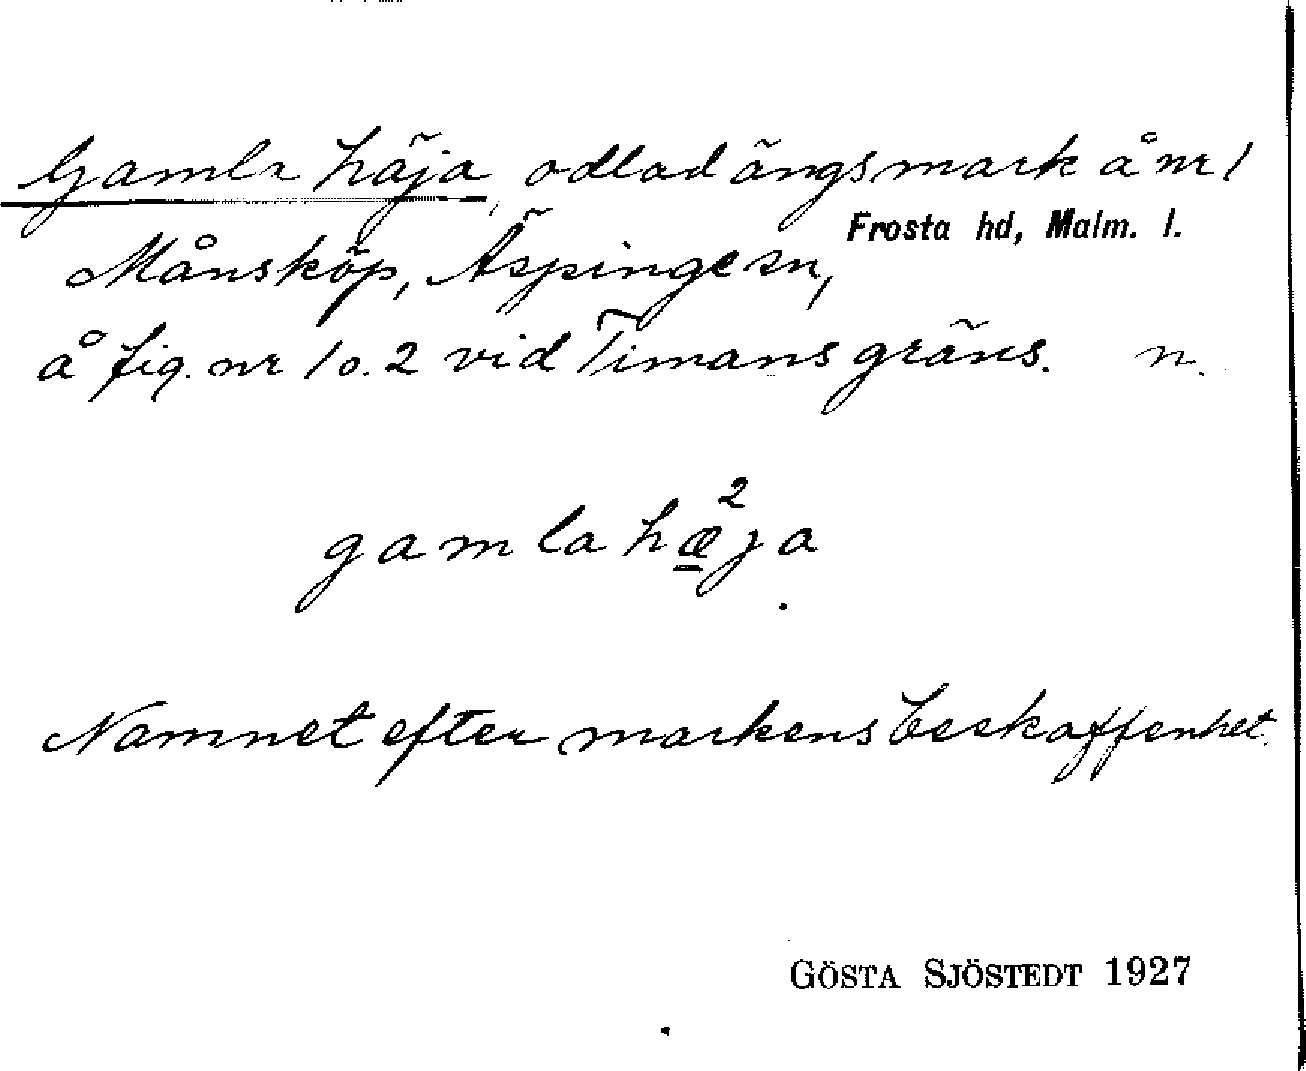 Gamla häja, odlad ängsmark å nr 1
Frosta hd, Malm. l.
Månsköp, Äspinge sn,
å fig. nr 1 o. 2 vid Timans gräns. n.
gamla hæ²ja
Namnet efter markens beskaffenhet.
GÖSTA SJÖSTEDT 1927